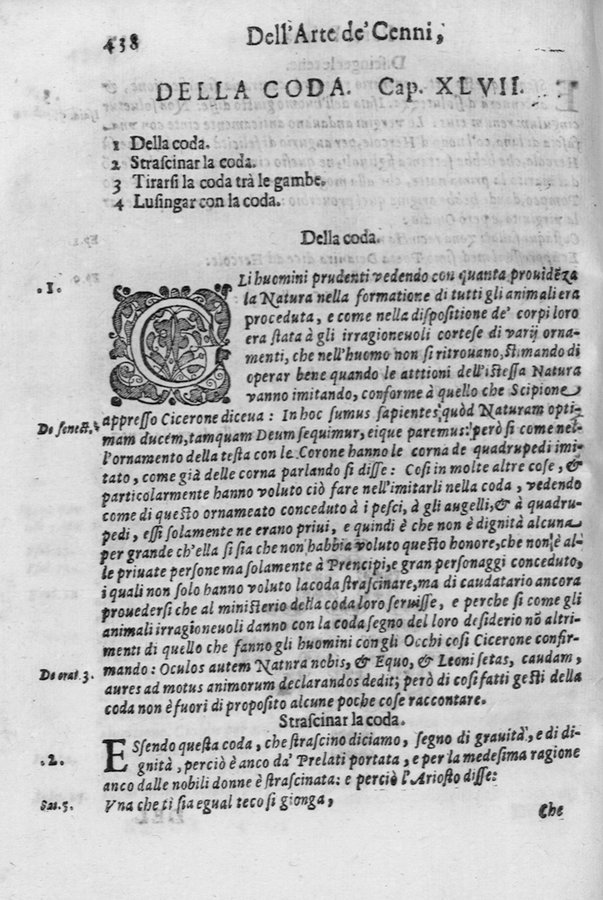 438
Dell'Arte de' Cenni,
DELLA CODA. Cap. XLVII.
1 Della coda.
2 Strascinar la coda.
3 Tirarsi la coda trà le gambe.
4 Lusingar con la coda.
Della coda.
.1.
GLi huomini prudenti vedendo con quanta prouidẽza
la Natura nella formatione di tutti gli animali era
proceduta, e come nella dispositione de' corpi loro
era stata à gli irragioneuoli cortese di varij orna-
menti, che nell'huomo non si ritrouano, stimando di
operar bene quando le atttioni dell'istessa Natura
vanno imitando, conforme à quello che Scipione
De senect.
appresso Cicerone diceua: In hoc sumus sapientes, quòd Naturam opti-
mam ducem, tamquam Deum sequimur, eique paremus: però si come nel-
l'ornamento della testa con le Corone hanno le corna de quadrupedi imi-
tato, come già delle corna parlando si disse: Cosi in molte altre cose, &
particolarmente hanno voluto ciò fare nell'imitarli nella coda, vedendo
come di questo ornameato conceduto à i pesci, à gli augelli, & à quadru-
pedi, essi solamente ne erano priui, e quindi è che non è dignità alcuna
per grande ch'ella si sia che non habbia voluto questo honore, che non è al-
le priuate persone ma solamente à Prencipi, e gran personaggi conceduto,
i quali non solo hanno voluto la coda strascinare, ma di caudatario ancora
prouedersi che al ministerio della coda loro seruisse, e perche si come gli
animali irragioneuoli danno con la coda segno del loro desiderio nõ altri-
menti di quello che fanno gli huomini con gli Occhi cosi Cicerone confir-
De orat. 3.
mando: Oculos autem Natura nobis, & Equo, & Leoni setas, caudam,
aures ad motus animorum declarandos dedit; però di cosi fatti gesti della
coda non è fuori di proposito alcune poche cose raccontare.
Strascinar la coda.
.2.
ESsendo questa coda, che strascino diciamo, segno di grauità, e di di-
gnità, perciò è anco da' Prelati portata, e per la medesima ragione
anco dalle nobili donne è strascinata: e perciò l'Ariosto disse:
Sat. 5.
Vna che ti sia egual teco si gionga,
Che